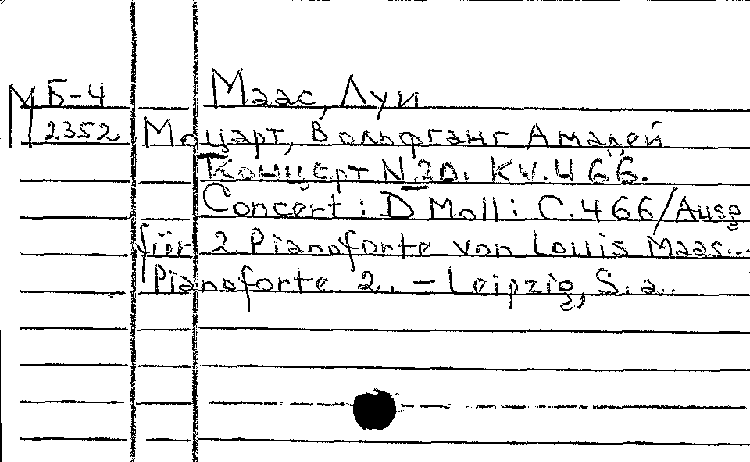 М Б-4 Маас, Луи
2352 Моцарт, Вольфганг Амадей
Концерт N 20. KV.466.
Concert: D Moll: C.466/Ausg
für 2 Pianoforte von Louis Maas..
Pianoforte 2.. – Leipzig, S.a.